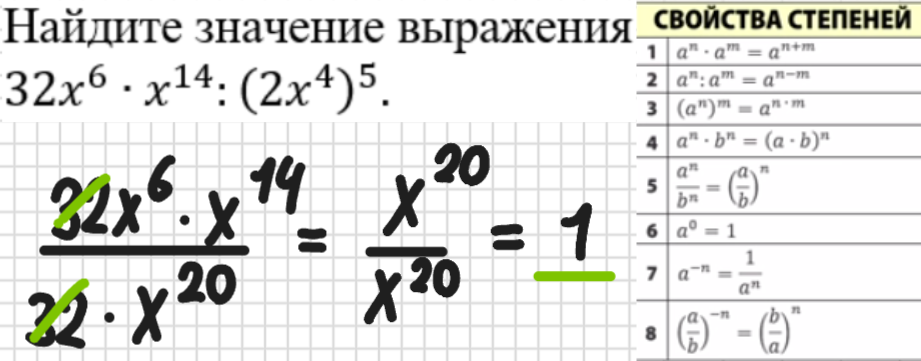 Найдите значение выражения
32x⁶ · x¹⁴: (2x⁴)⁵.
32x⁶ · x¹⁴ / 32 · x²⁰ = x²⁰ / x²⁰ = 1
СВОЙСТВА СТЕПЕНЕЙ
1 aⁿ · aᵐ = aⁿ⁺ᵐ
2 aⁿ: aᵐ = aⁿ⁻ᵐ
3 (aⁿ)ᵐ = aⁿ · ᵐ
4 aⁿ · bⁿ = (a · b)ⁿ
5 aⁿ/bⁿ = (a/b)ⁿ
6 a⁰ = 1
7 a⁻ⁿ = 1/aⁿ
8 (a/b)⁻ⁿ = (b/a)ⁿ